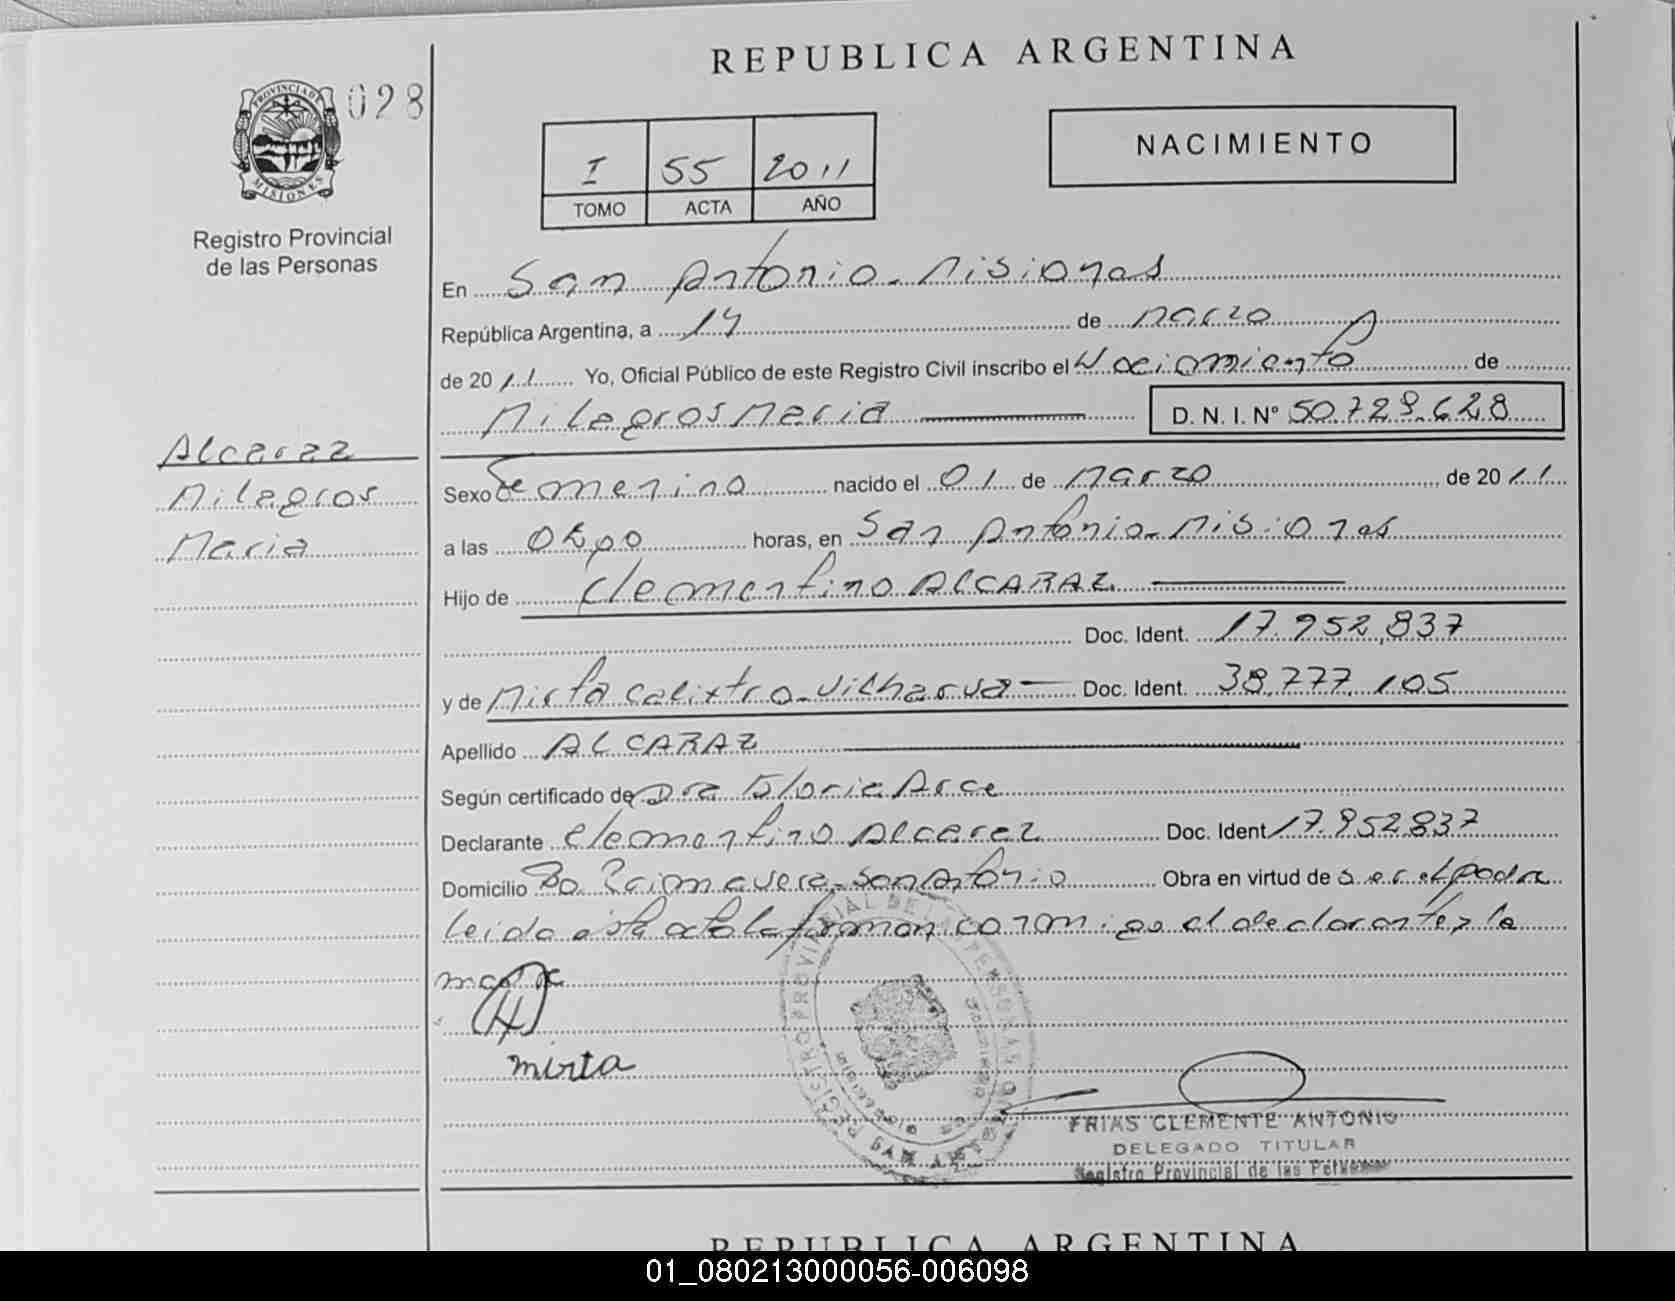 REPUBLICA ARGENTINA
028
PROVINCIA DE MISIONES
Registro Provincial
de las Personas
I 55 2011
TOMO ACTA AÑO
NACIMIENTO
En San Antonio - Misiones
República Argentina, a 14 de Marzo
de 2011 Yo, Oficial Público de este Registro Civil inscribo el Nacimiento de
Milagros Maria D. N. I. Nº 50.729.628
Alcaraz
Milagros
Maria
Sexo Femenino nacido el 01 de Marzo de 2011
a las horas, en San Antonio - Misiones
Hijo de Clementino ALCARAZ
Doc. Ident. 17.952.837
y de Mirta Calixtro Vilharva Doc. Ident. 38.777.105
Apellido ALCARAZ
Según certificado de Dra Gloria Arce
Declarante Clementino Alcaraz Doc. Ident 17.952.837
Domicilio Bo Primavera - San Antonio Obra en virtud de ser el padre
leida esta acta la firman conmigo el declarante y la
madre
mirta
REGISTRO PROVINCIAL DE LAS PERSONAS
FRIAS CLEMENTE ANTONIO
DELEGADO TITULAR
Registro Provincial de las Personas
REPUBLICA ARGENTINA
01_080213000056-006098